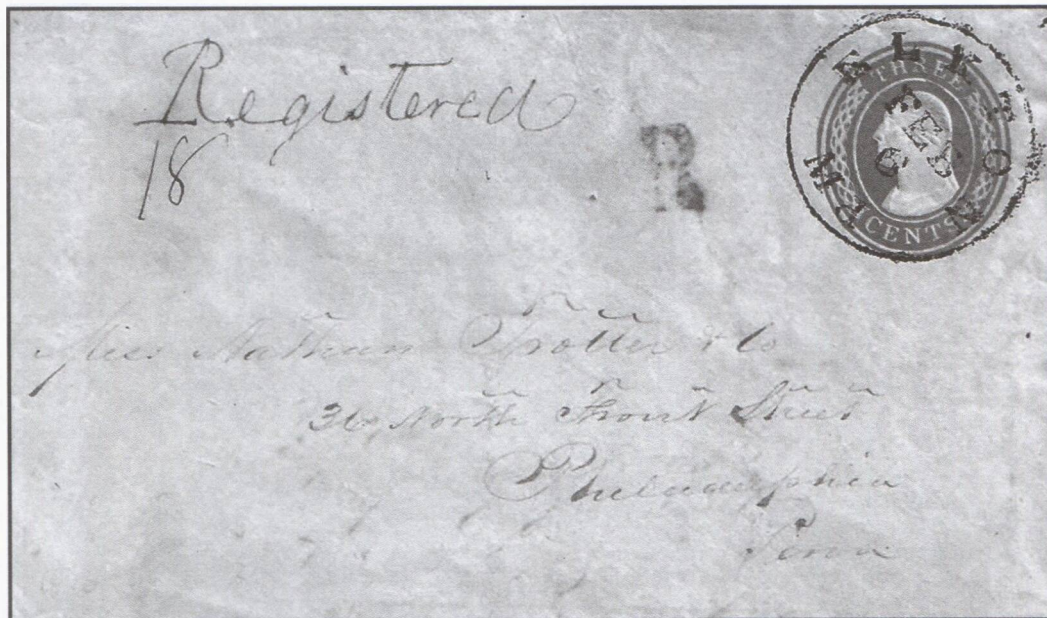 Registered
18
R
ELKTON
FEB
THREE
CENTS
Nathan Trotter & Co
36 North Front Street
Philadelphia
Penn